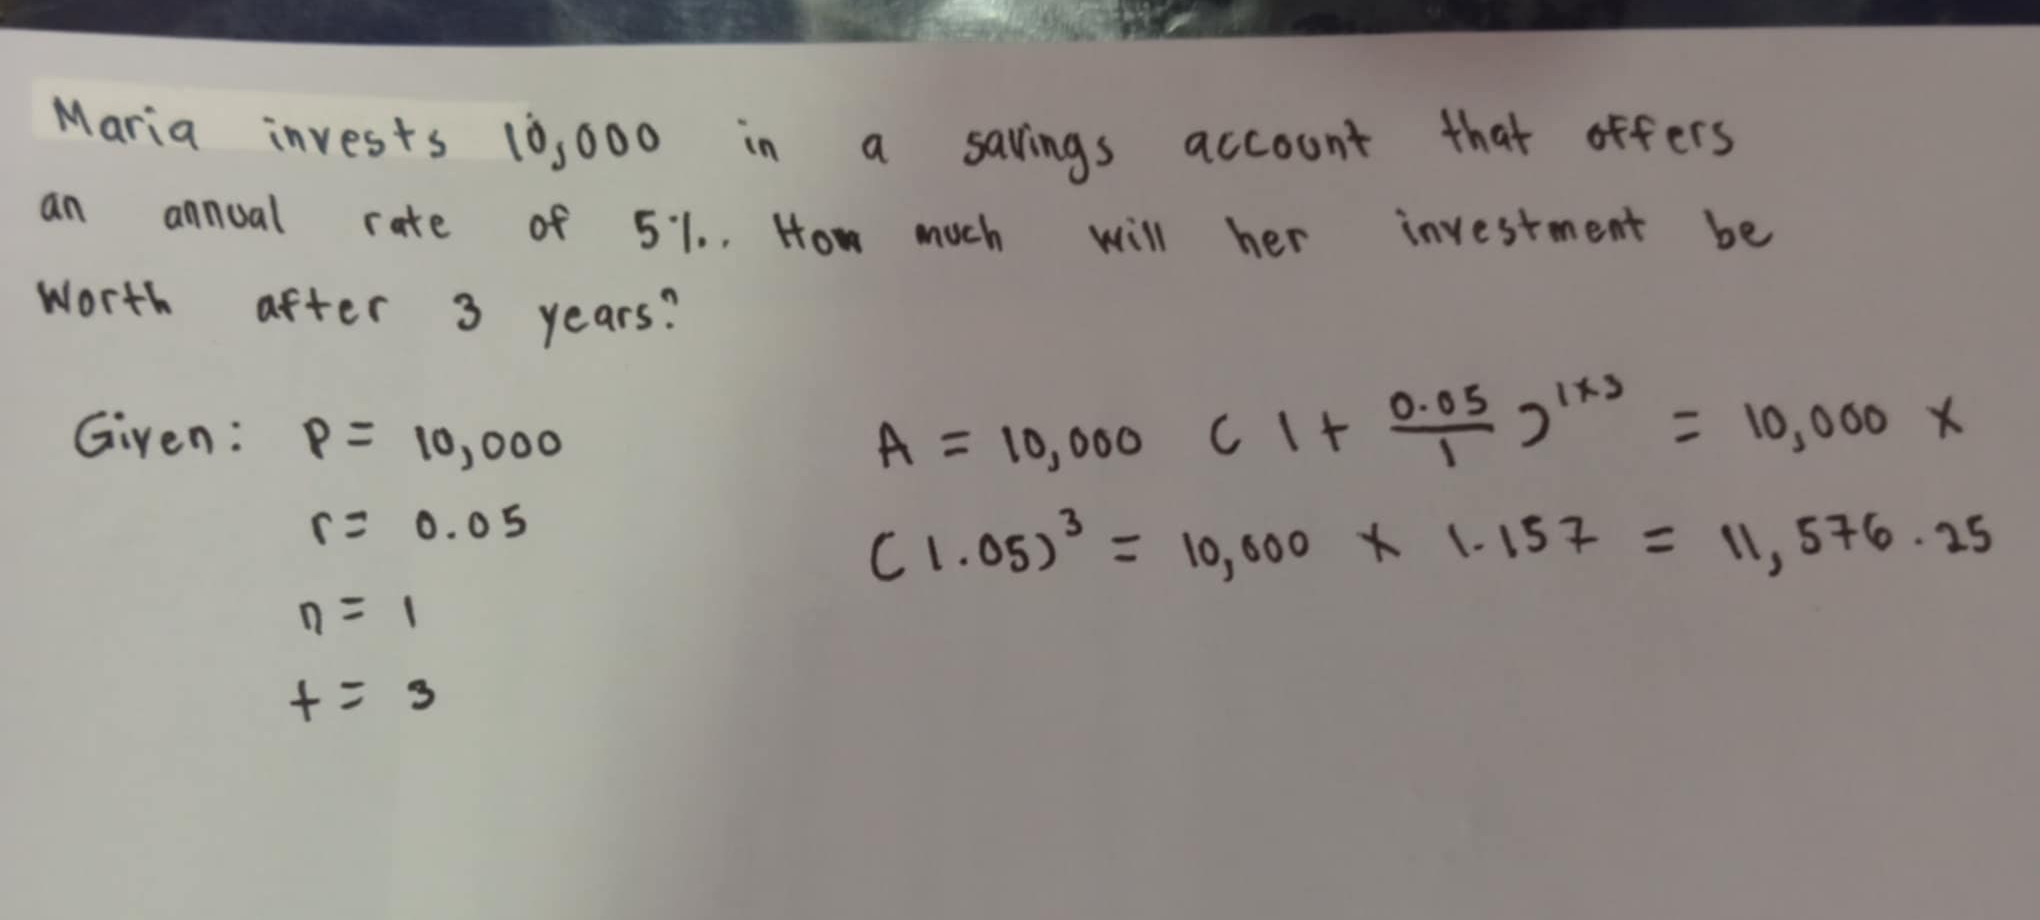 Maria invests 10,000 in a savings account that offers
an annual rate of 5%. How much will her investment be
worth after 3 years?
Given: P = 10,000
r = 0.05
n = 1
t = 3
A = 10,000 (1 + 0.05/1)^1×3 = 10,000 ×
(1.05)^3 = 10,000 × 1.157 = 11,576.25